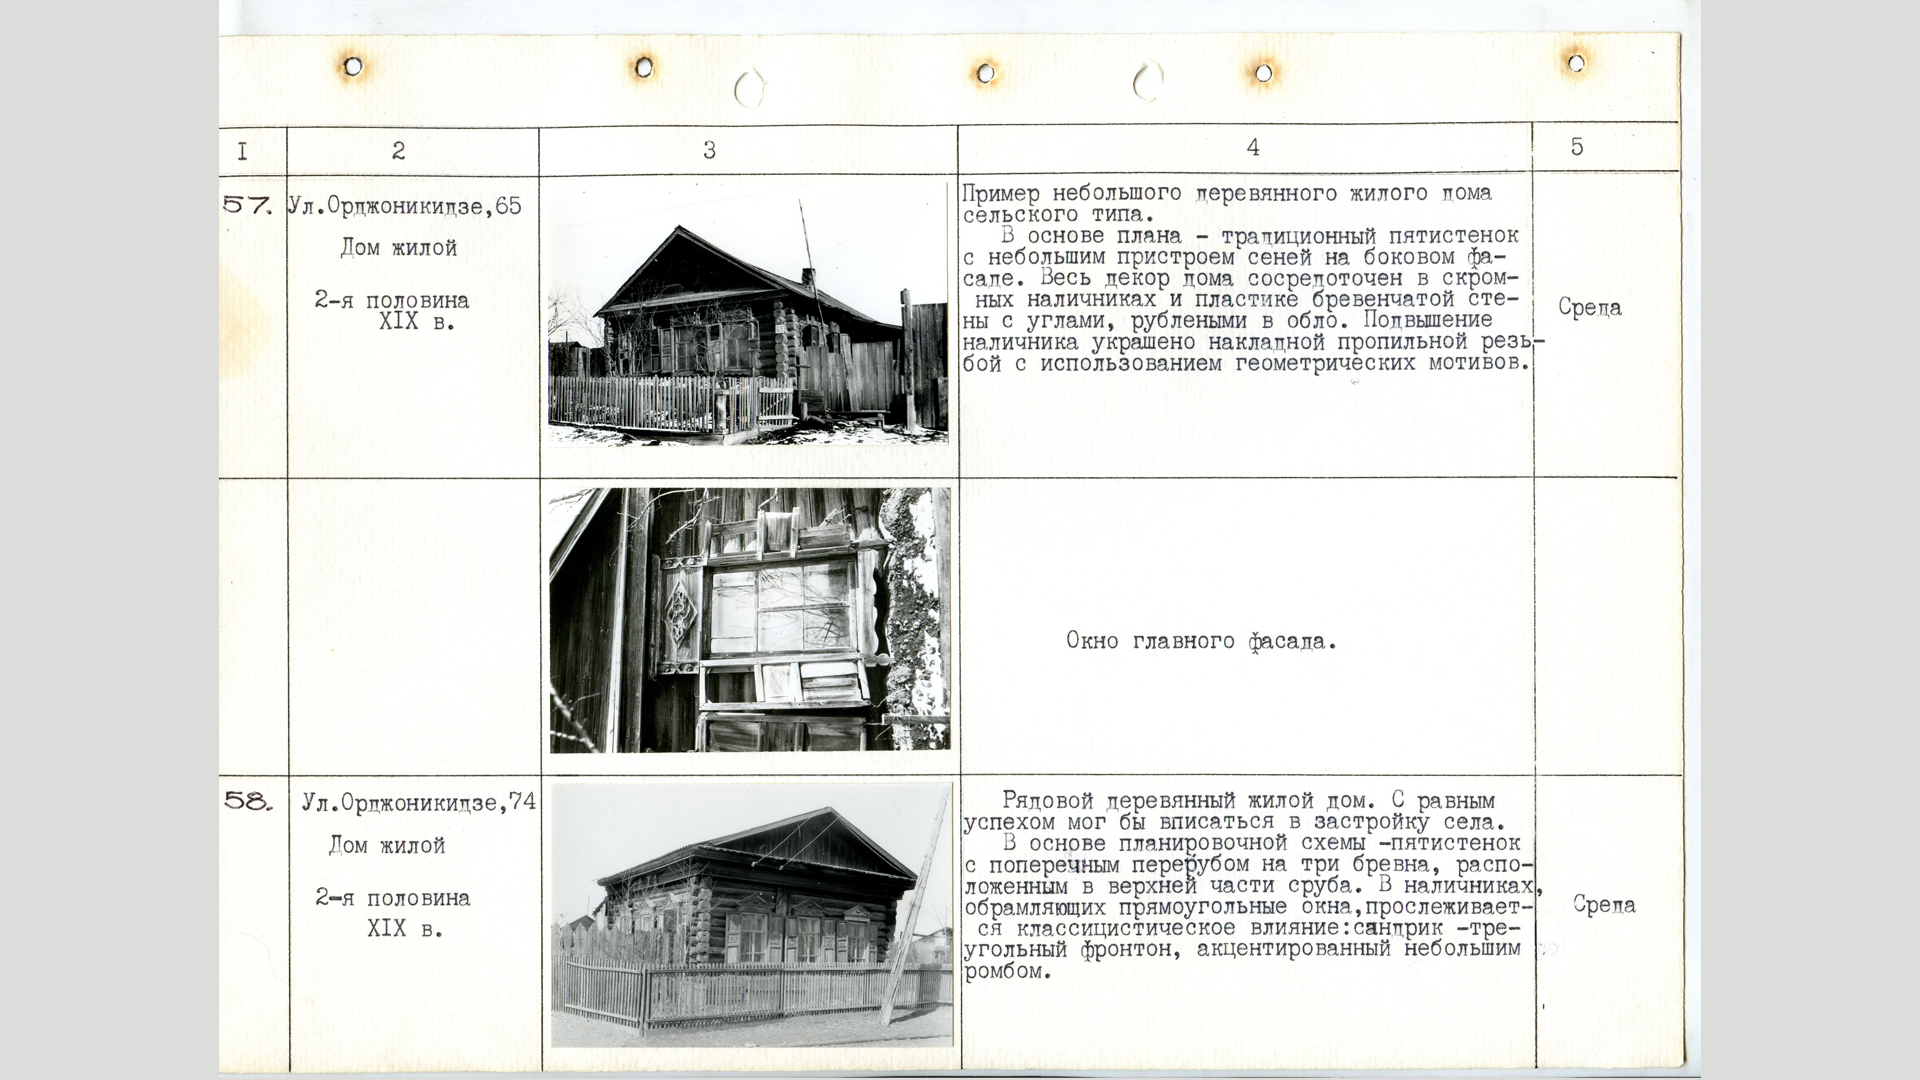 I 2 3 4 5
57. Ул.Орджоникидзе,65
Дом жилой
2-я половина
XIX в.
Пример небольшого деревянного жилого дома
сельского типа.
В основе плана - традиционный пятистенок
с небольшим пристроем сеней на боковом фа-
саде. Весь декор дома сосредоточен в скром-
ных наличниках и пластике бревенчатой сте-
ны с углами, рублеными в обло. Подвышение
наличника украшено накладной пропильной резь-
бой с использованием геометрических мотивов.
Среда
Окно главного фасада.
58. Ул.Орджоникидзе,74
Дом жилой
2-я половина
XIX в.
Рядовой деревянный жилой дом. С равным
успехом мог бы вписаться в застройку села.
В основе планировочной схемы -пятистенок
с поперечным перерубом на три бревна, распо-
ложенным в верхней части сруба. В наличниках,
обрамляющих прямоугольные окна,прослеживает-
ся классицистическое влияние:сандрик -тре-
угольный фронтон, акцентированный небольшим
ромбом.
Среда